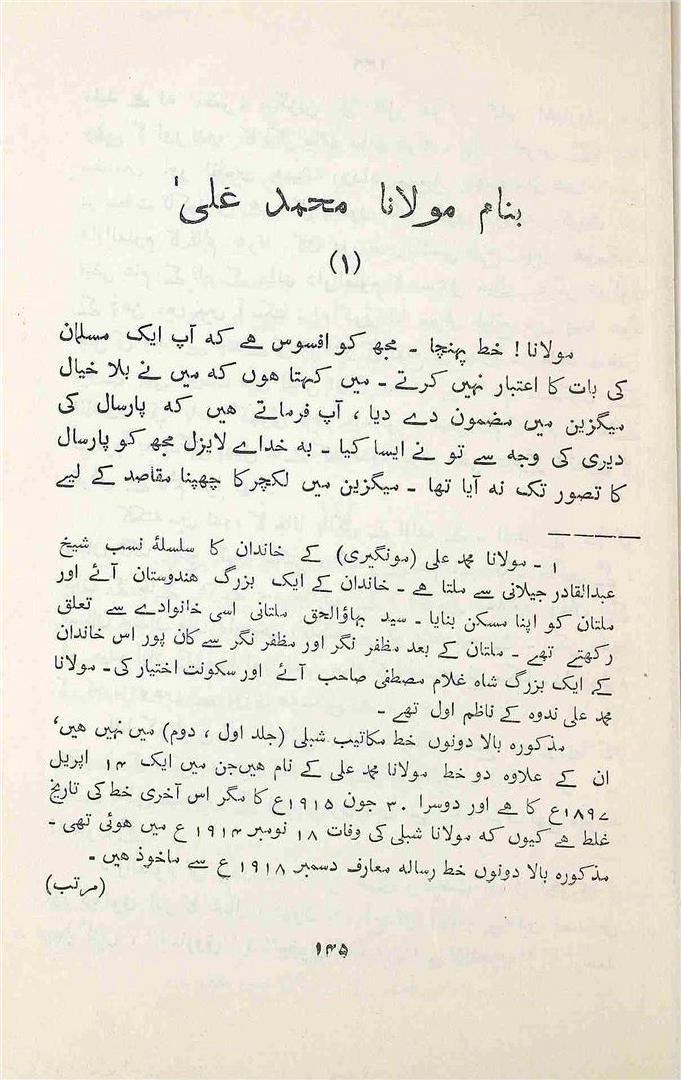 بنام مولانا محمد علی۱
(۱)
مولانا! خط پہنچا ۔ مجھ کو افسوس ہے کہ آپ ایک مسلمان
کی بات کا اعتبار نہیں کرتے ۔ میں کہتا ہوں کہ میں نے بلا خیال
میگزین میں مضمون دے دیا ، آپ فرماتے ہیں کہ پارسال کی
دیری کی وجہ سے تو نے ایسا کیا ۔ بہ خداے لایزل مجھ کو پارسال
کا تصور تک نہ آیا تھا ۔ میگزین میں لکچر کا چھپنا مقاصد کے لیے
۱ ۔ مولانا محمد علی (مونگیری) کے خاندان کا سلسلۂ نسب شیخ
عبدالقادر جیلانی سے ملتا ہے ۔ خاندان کے ایک بزرگ ہندوستان آئے اور
ملتان کو اپنا مسکن بنایا ۔ سید بہاؤالحق ملتانی اسی خانوادے سے تعلق
رکھتے تھے ۔ ملتان کے بعد مظفر نگر اور مظفر نگر سے کان پور اس خاندان
کے ایک بزرگ شاہ غلام مصطفی صاحب آئے اور سکونت اختیار کی ۔ مولانا
محمد علی ندوہ کے ناظم اول تھے ۔
مذکورہ بالا دونوں خط مکاتیب شبلی (جلد اول ، دوم) میں نہیں ہیں‘
ان کے علاوہ دو خط مولانا محمد علی کے نام ہیں جن میں ایک ۱۴ اپریل
۱۸۹۷ع کا ہے اور دوسرا ۳۰ جون ۱۹۱۵ع کا مگر اس آخری خط کی تاریخ
غلط ہے کیوں کہ مولانا شبلی کی وفات ۱۸ نومبر ۱۹۱۴ ع میں ہوئی تھی ۔
مذکورہ بالا دونوں خط رسالہ معارف دسمبر ۱۹۱۸ ع سے ماخوذ ہیں ۔
(مرتب)
۱۴۵